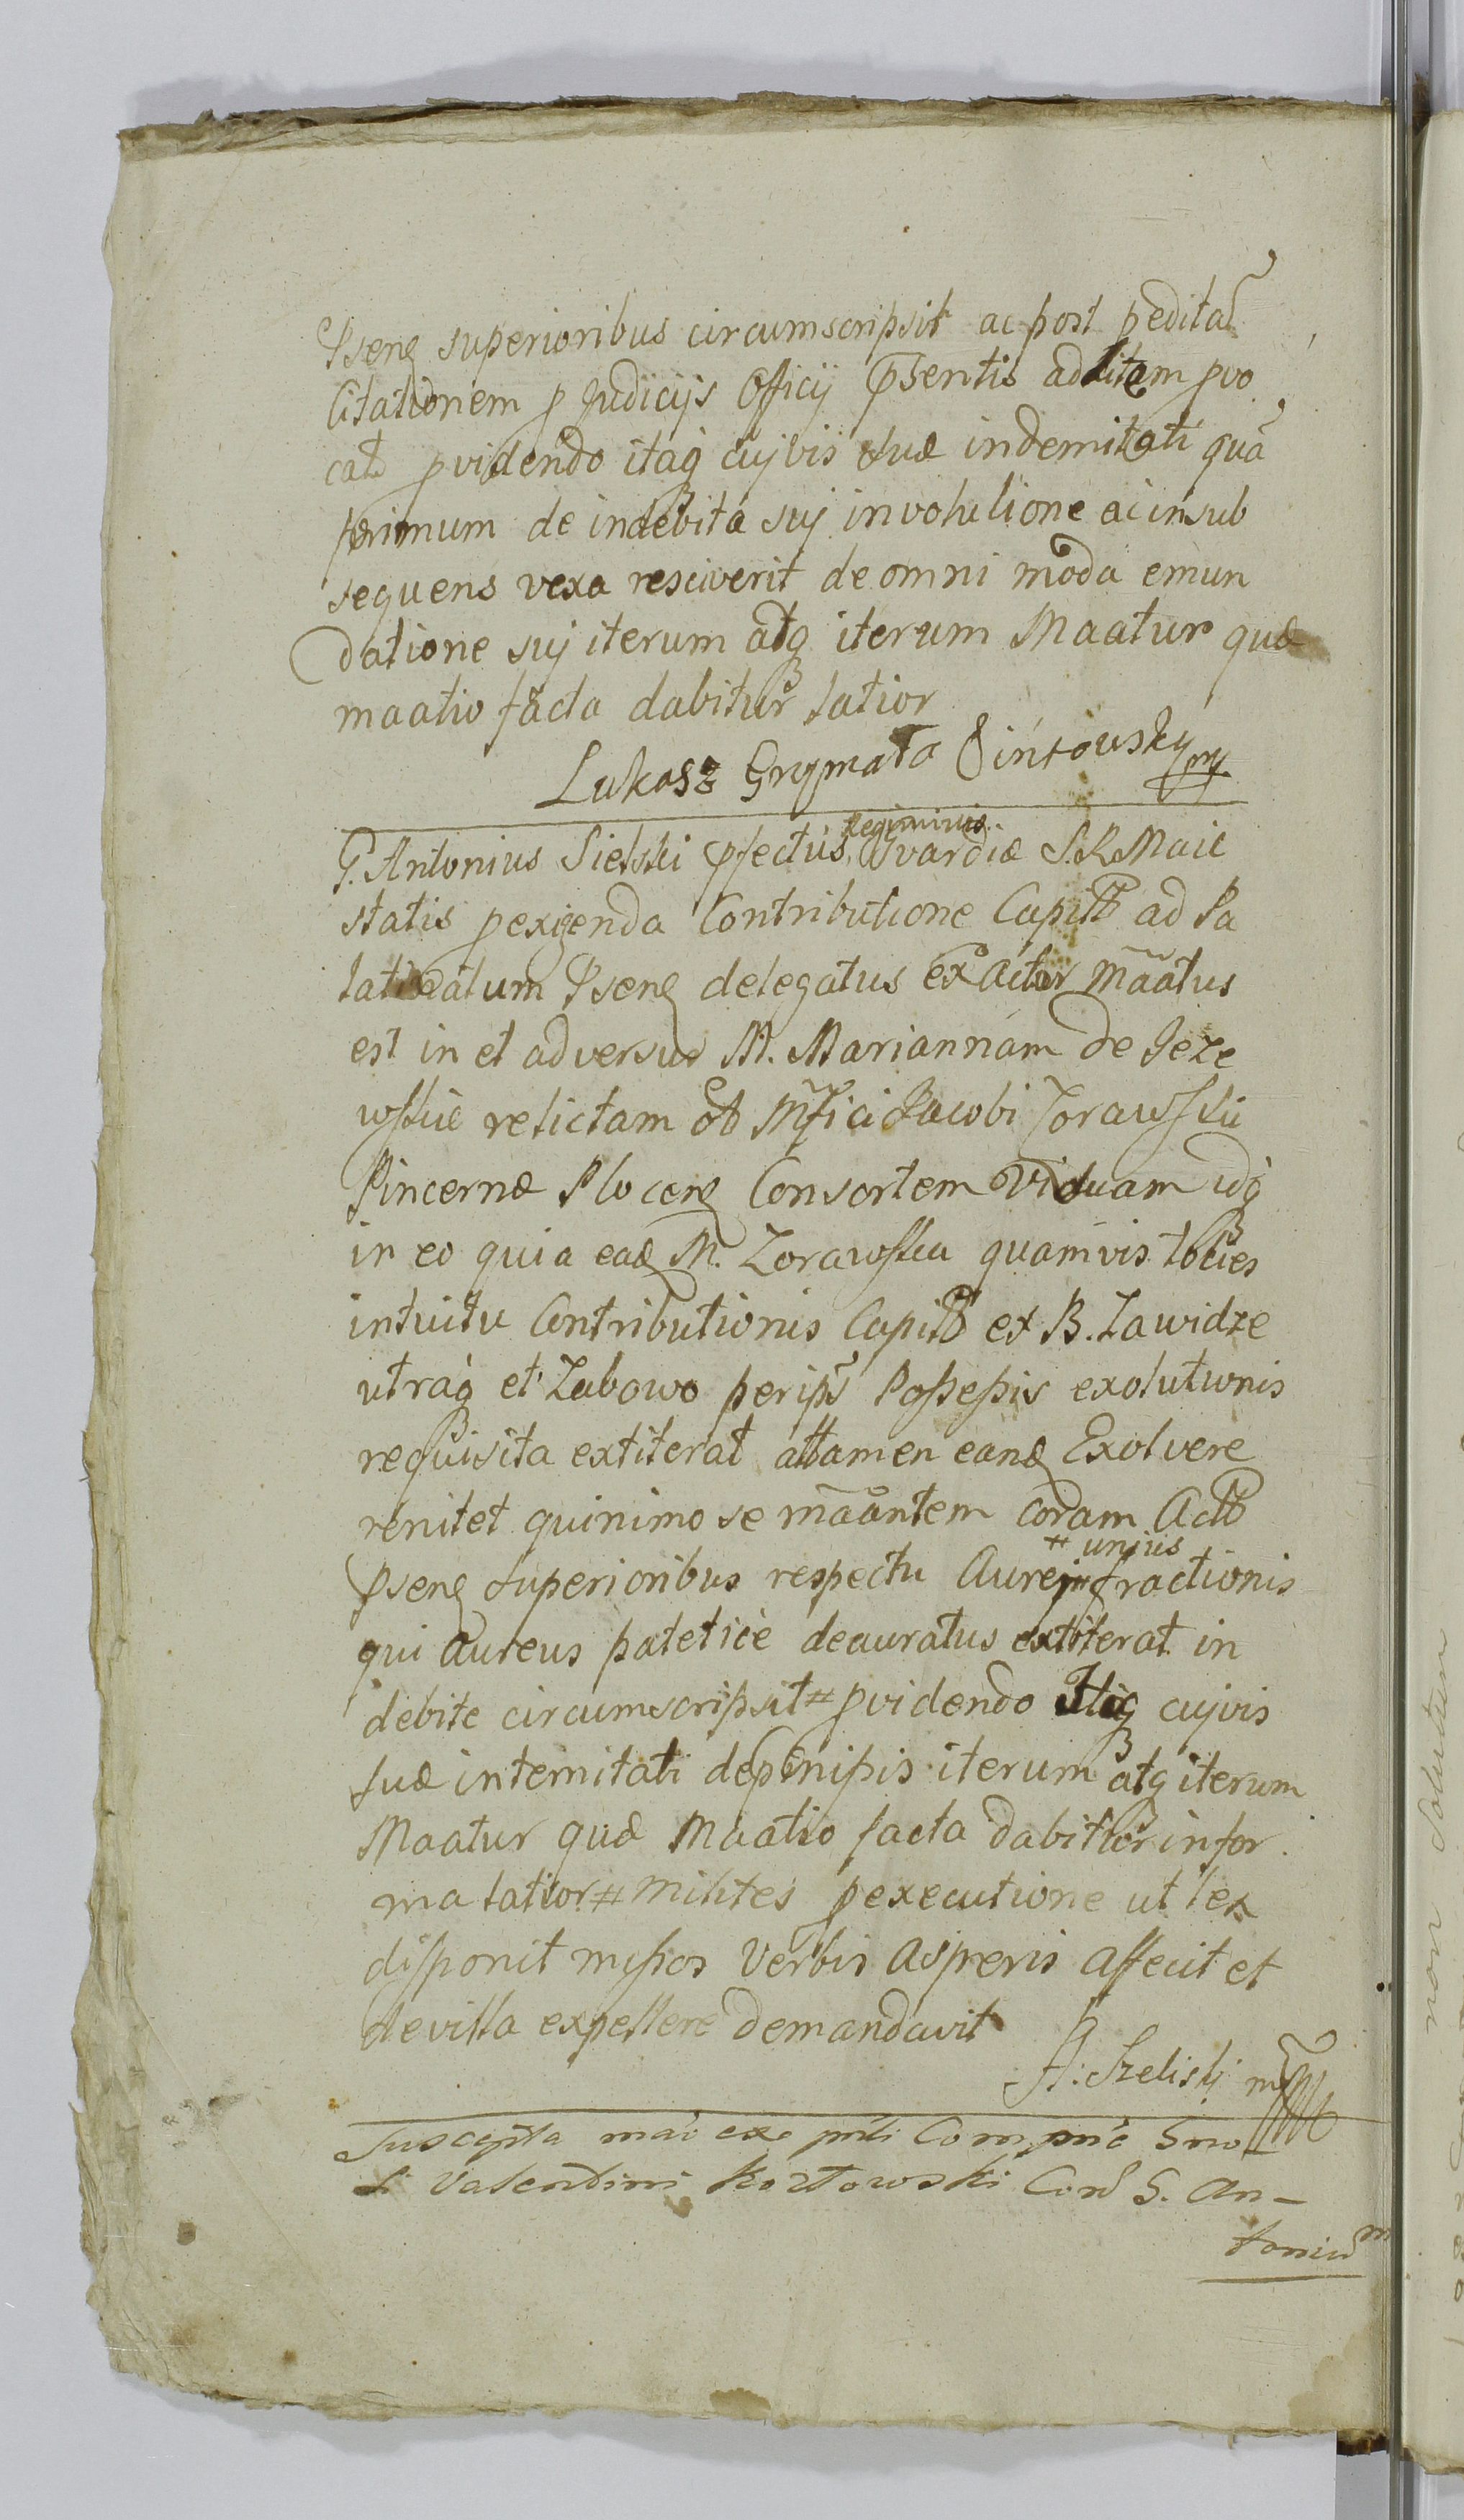 Pseng superioribus circumscripsit ac post peditam
Citationem p Judicijs Officij Psentis ad litem pvo
cat pvidendo itaq cujvis suæ indemitati quā
primum de indebita suj involutione ac in sub
sequens vexa resciverit de omni moda emun
datione suj iterum atq iterum Maatur quæ
maatio facta dabitur latior
Lukasz Grzymała
G. Antonius Sielski pfectus Regiminis Gvardiæ S.R.Maie
statis p exigenda Contributione Capitt ad Pa
latinatum Pseng delegatus exactor māatus
est in et adversus M. Mariannam de Jeze
wskie relictam ol Mfici Jacobi Zorawskii
Pincernæ Ploceng Consortem Viduam idq
in eo quia ead M. Zorawska quamvis toties
intuitu Contributionis Capitt ex B. Zawidze
utraq et Zabowo per ipm Possessis exolutionis
requisita extiterat attamen eand Exolvere
renitet quinimo se māantem coram Actt
Pseng superioribus respectu Aurei # unius fractionis
qui aureus patetice deauratus extiterat in
debite circumscripsit # pvidendo Itaq cujvis
suæ intemitati de pmissis iterum atq iterum
Maatur quæ Maatio facta dabitur in for
ma latior # milites p executione ut lex
disponit missos Verbis Asperis affecit et
de villa expellere demandavit
A: Szeliski mp
Suscepta māo exe pnti Com pnè Gno
Valentini Kozłowski Con G. An-
tonium